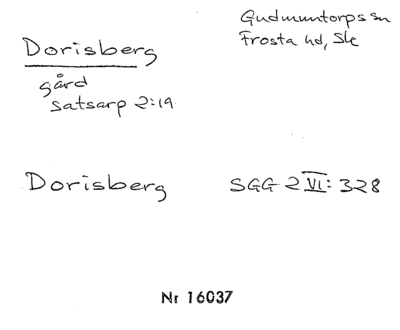 Dorisberg
Gudmuntorps sn
Frosta hd, Sk
gård
Satsarp 2:19
Dorisberg
SGG 2 VI: 328
Nr 16037